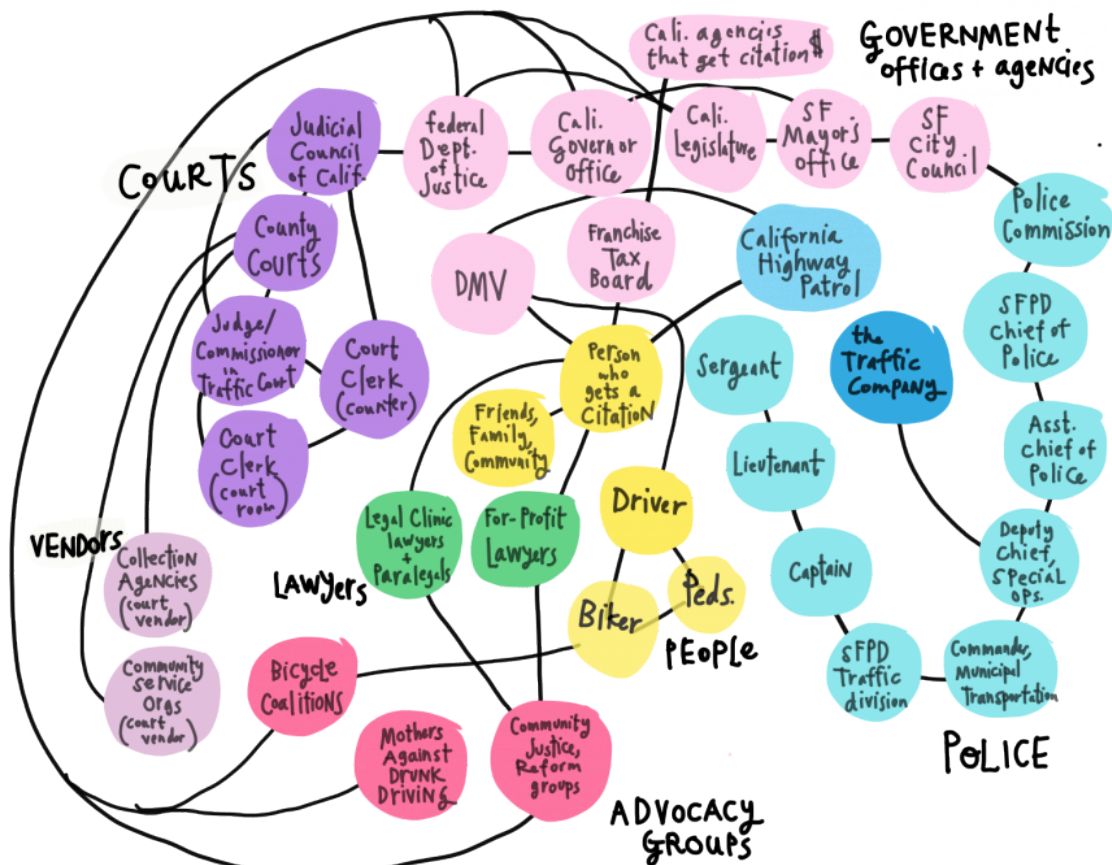 Cali. agencies
that get citation $
GOVERNMENT
offices + agencies
COURTS
Judicial
Council
of Calif.
federal
Dept.
of
Justice
Cali.
Governor
Office
Cali.
Legislature
SF
Mayor's
Office
SF
City
Council
Police
Commission
County
Courts
DMV
Franchise
Tax
Board
California
Highway
Patrol
SFPD
Chief of
Police
Judge/
Commissioner
in
Traffic Court
Court
Clerk
(counter)
Person
who
gets a
Citation
Sergeant
the
Traffic
Company
Friends,
Family,
Community
Court
Clerk
(court
room)
Lieutenant
Asst.
chief of
Police
VENDORS
Collection
Agencies
(court
vendor)
LAWyers
Legal Clinic
lawyers
+
Paralegals
For-Profit
Lawyers
Driver
Biker
Peds.
PEOPLE
Captain
Deputy
Chief,
Special
Ops.
Community
Service
Orgs
(court
vendor)
Bicycle
Coalitions
SFPD
Traffic
division
Commander,
Municipal
Transportation
POLICE
Mothers
Against
Drunk
Driving
Community
Justice,
Reform
groups
ADVOCACY
GROUPS